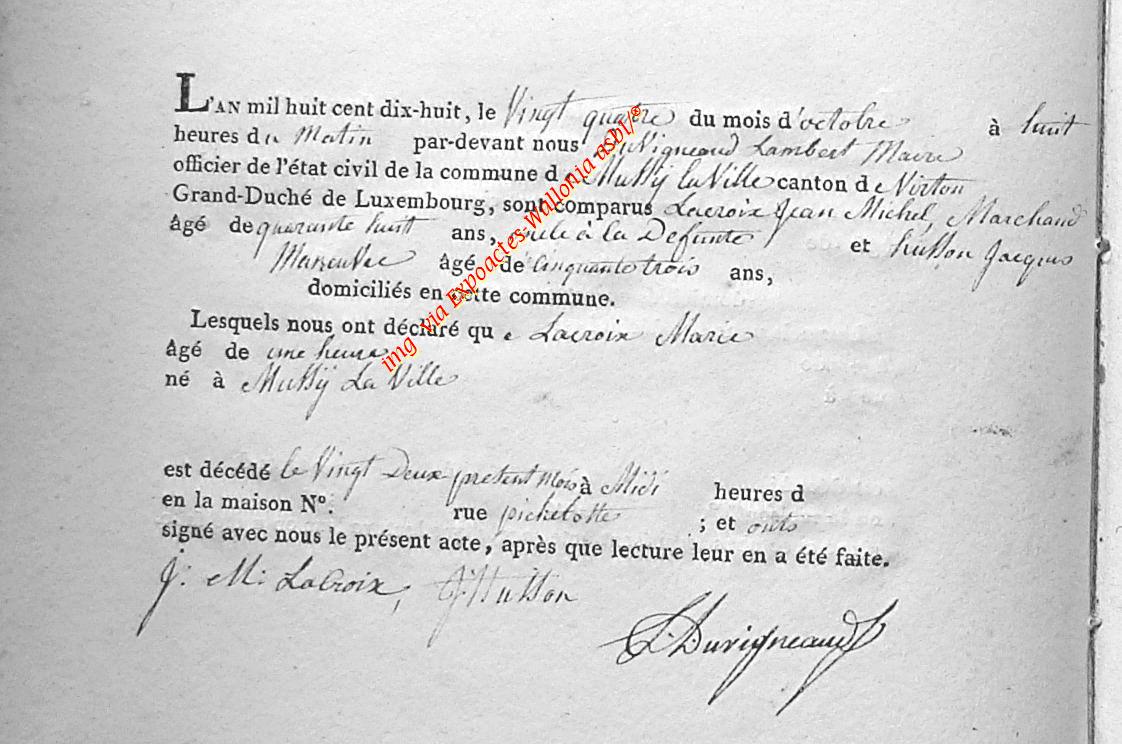 L'AN mil huit cent dix-huit, le Vingt quatre du mois d'octobre à huit
heures du Matin par-devant nous DuVigneaud Lambert Maire
officier de l'état civil de la commune de Mussÿ la Ville canton de Virton
Grand-Duché de Luxembourg, sont comparus Lacroix Jean Michel, Marchand
âgé de quarante huit ans, oncle à la Defunte et husson Jacques
Manœuvre âgé de Cinquante trois ans,
domiciliés en cette commune.
Lesquels nous ont déclaré que Lacroix Marie
âgé de une heure
né à Mussÿ La Ville
est décédé le Vingt Deux present mois à Midi heures d
en la maison N°. rue pichelotte ; et onts
signé avec nous le présent acte, après que lecture leur en a été faite.
J: M: LaCroix, J Husson
L. Duvigneaud
img via Expoactes-Wallonia asbl/®